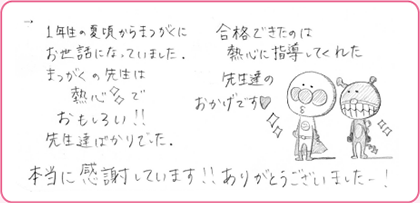 1年生の夏頃からまつがくに
お世話になっていました.
まつがくの先生は
熱心で
おもしろい!!
先生達ばかりでした.
合格できたのは
熱心に指導してくれた
先生達の
おかげです♡
本当に感謝しています!!ありがとうございましたー!